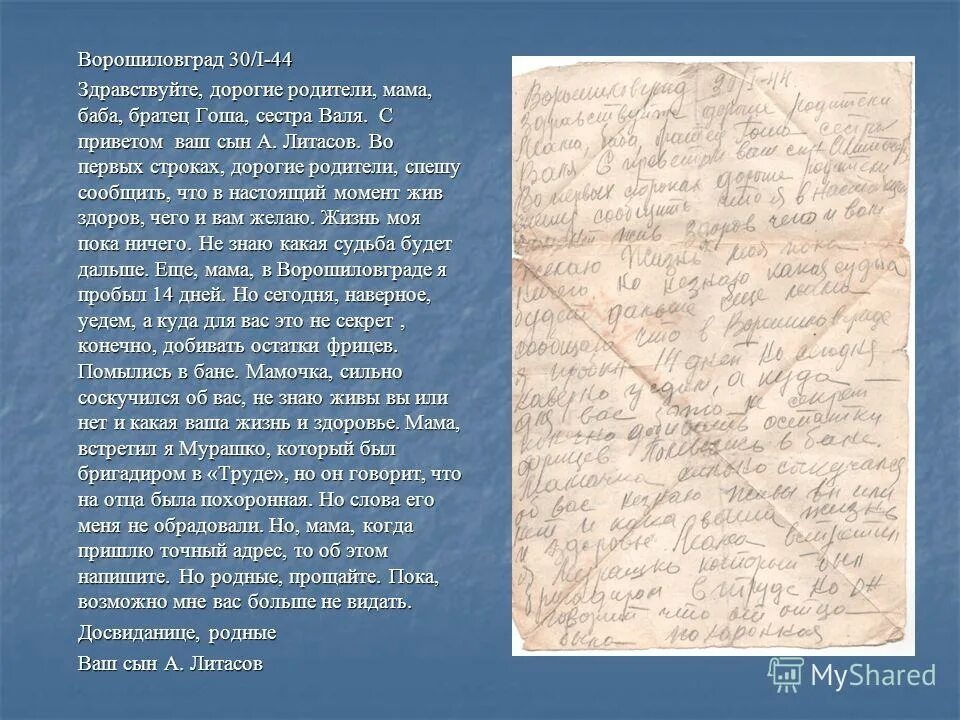 Ворошиловград 30/I-44
Здравствуйте, дорогие родители, мама,
баба, братец Гоша, сестра Валя. С
приветом ваш сын А. Литасов. Во
первых строках, дорогие родители, спешу
сообщить, что в настоящий момент жив
здоров, чего и вам желаю. Жизнь моя
пока ничего. Не знаю какая судьба будет
дальше. Еще, мама, в Ворошиловграде я
пробыл 14 дней. Но сегодня, наверное,
уедем, а куда для вас это не секрет ,
конечно, добивать остатки фрицев.
Помылись в бане. Мамочка, сильно
соскучился об вас, не знаю живы вы или
нет и какая ваша жизнь и здоровье. Мама,
встретил я Мурашко, который был
бригадиром в «Труде», но он говорит, что
на отца была похоронная. Но слова его
меня не обрадовали. Но, мама, когда
пришлю точный адрес, то об этом
напишите. Но родные, прощайте. Пока,
возможно мне вас больше не видать.
Досвиданице, родные
Ваш сын А. Литасов
Ворошиловград 30/I-44.
Здравствуйте дорогие родители
Мама, баба, братец Гоша сестра
Валя С приветом ваш сын А Литасов
Во первых строках дорогие родители
спешу сообщить что я в настоящий
момент жив здоров чего и вам
желаю Жизнь моя пока
ничего но незнаю какая судьба
будет дальше еще мама
сообщаю что в Ворошиловграде
я пробыл 14 дней Но сегодня
наверно уедем, а куда
для вас это не секрет
конечно добивать остатки
фрицев Помылись в бане.
Мамочка сильно соскучился
об вас незнаю живы вы или
нет и какая ваша жизнь
и здоровье. Мама встретил
я Мурашко который был
бригадиром в труде но он
говорит что на отца
была похоронная
MyShared